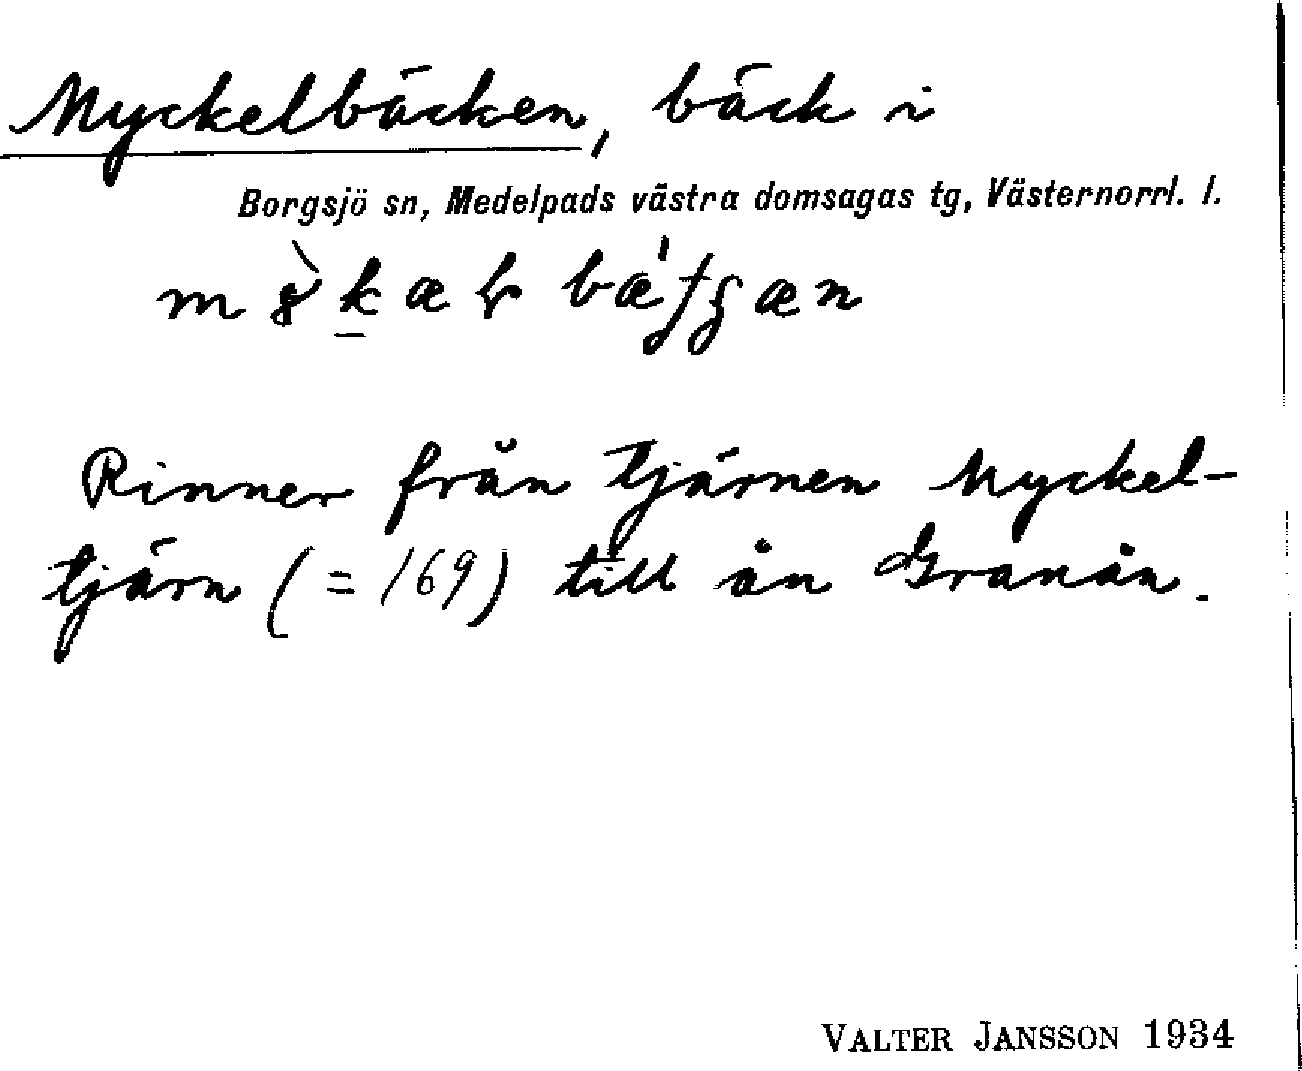 Myckelbäcken, bäck i
Borgsjö sn, Medelpads västra domsagas tg, Västernorrl. l.
Rinner från tjärnen Myckel-
tjärn (= 169) till ån Granån.
VALTER JANSSON 1934